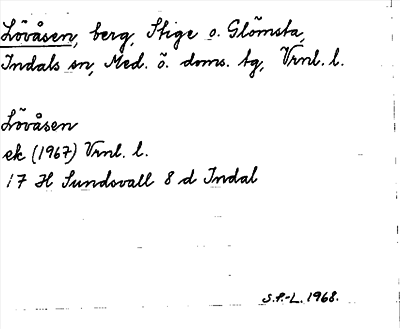 Lövåsen, berg, Stige o. Glömsta,
Indals sn, Med. ö. doms. tg, Vrnl. l.
Lövåsen
ek (1967) Vrnl. l.
17 H Sundsvall 8 d Indal
S.P.-L. 1968.